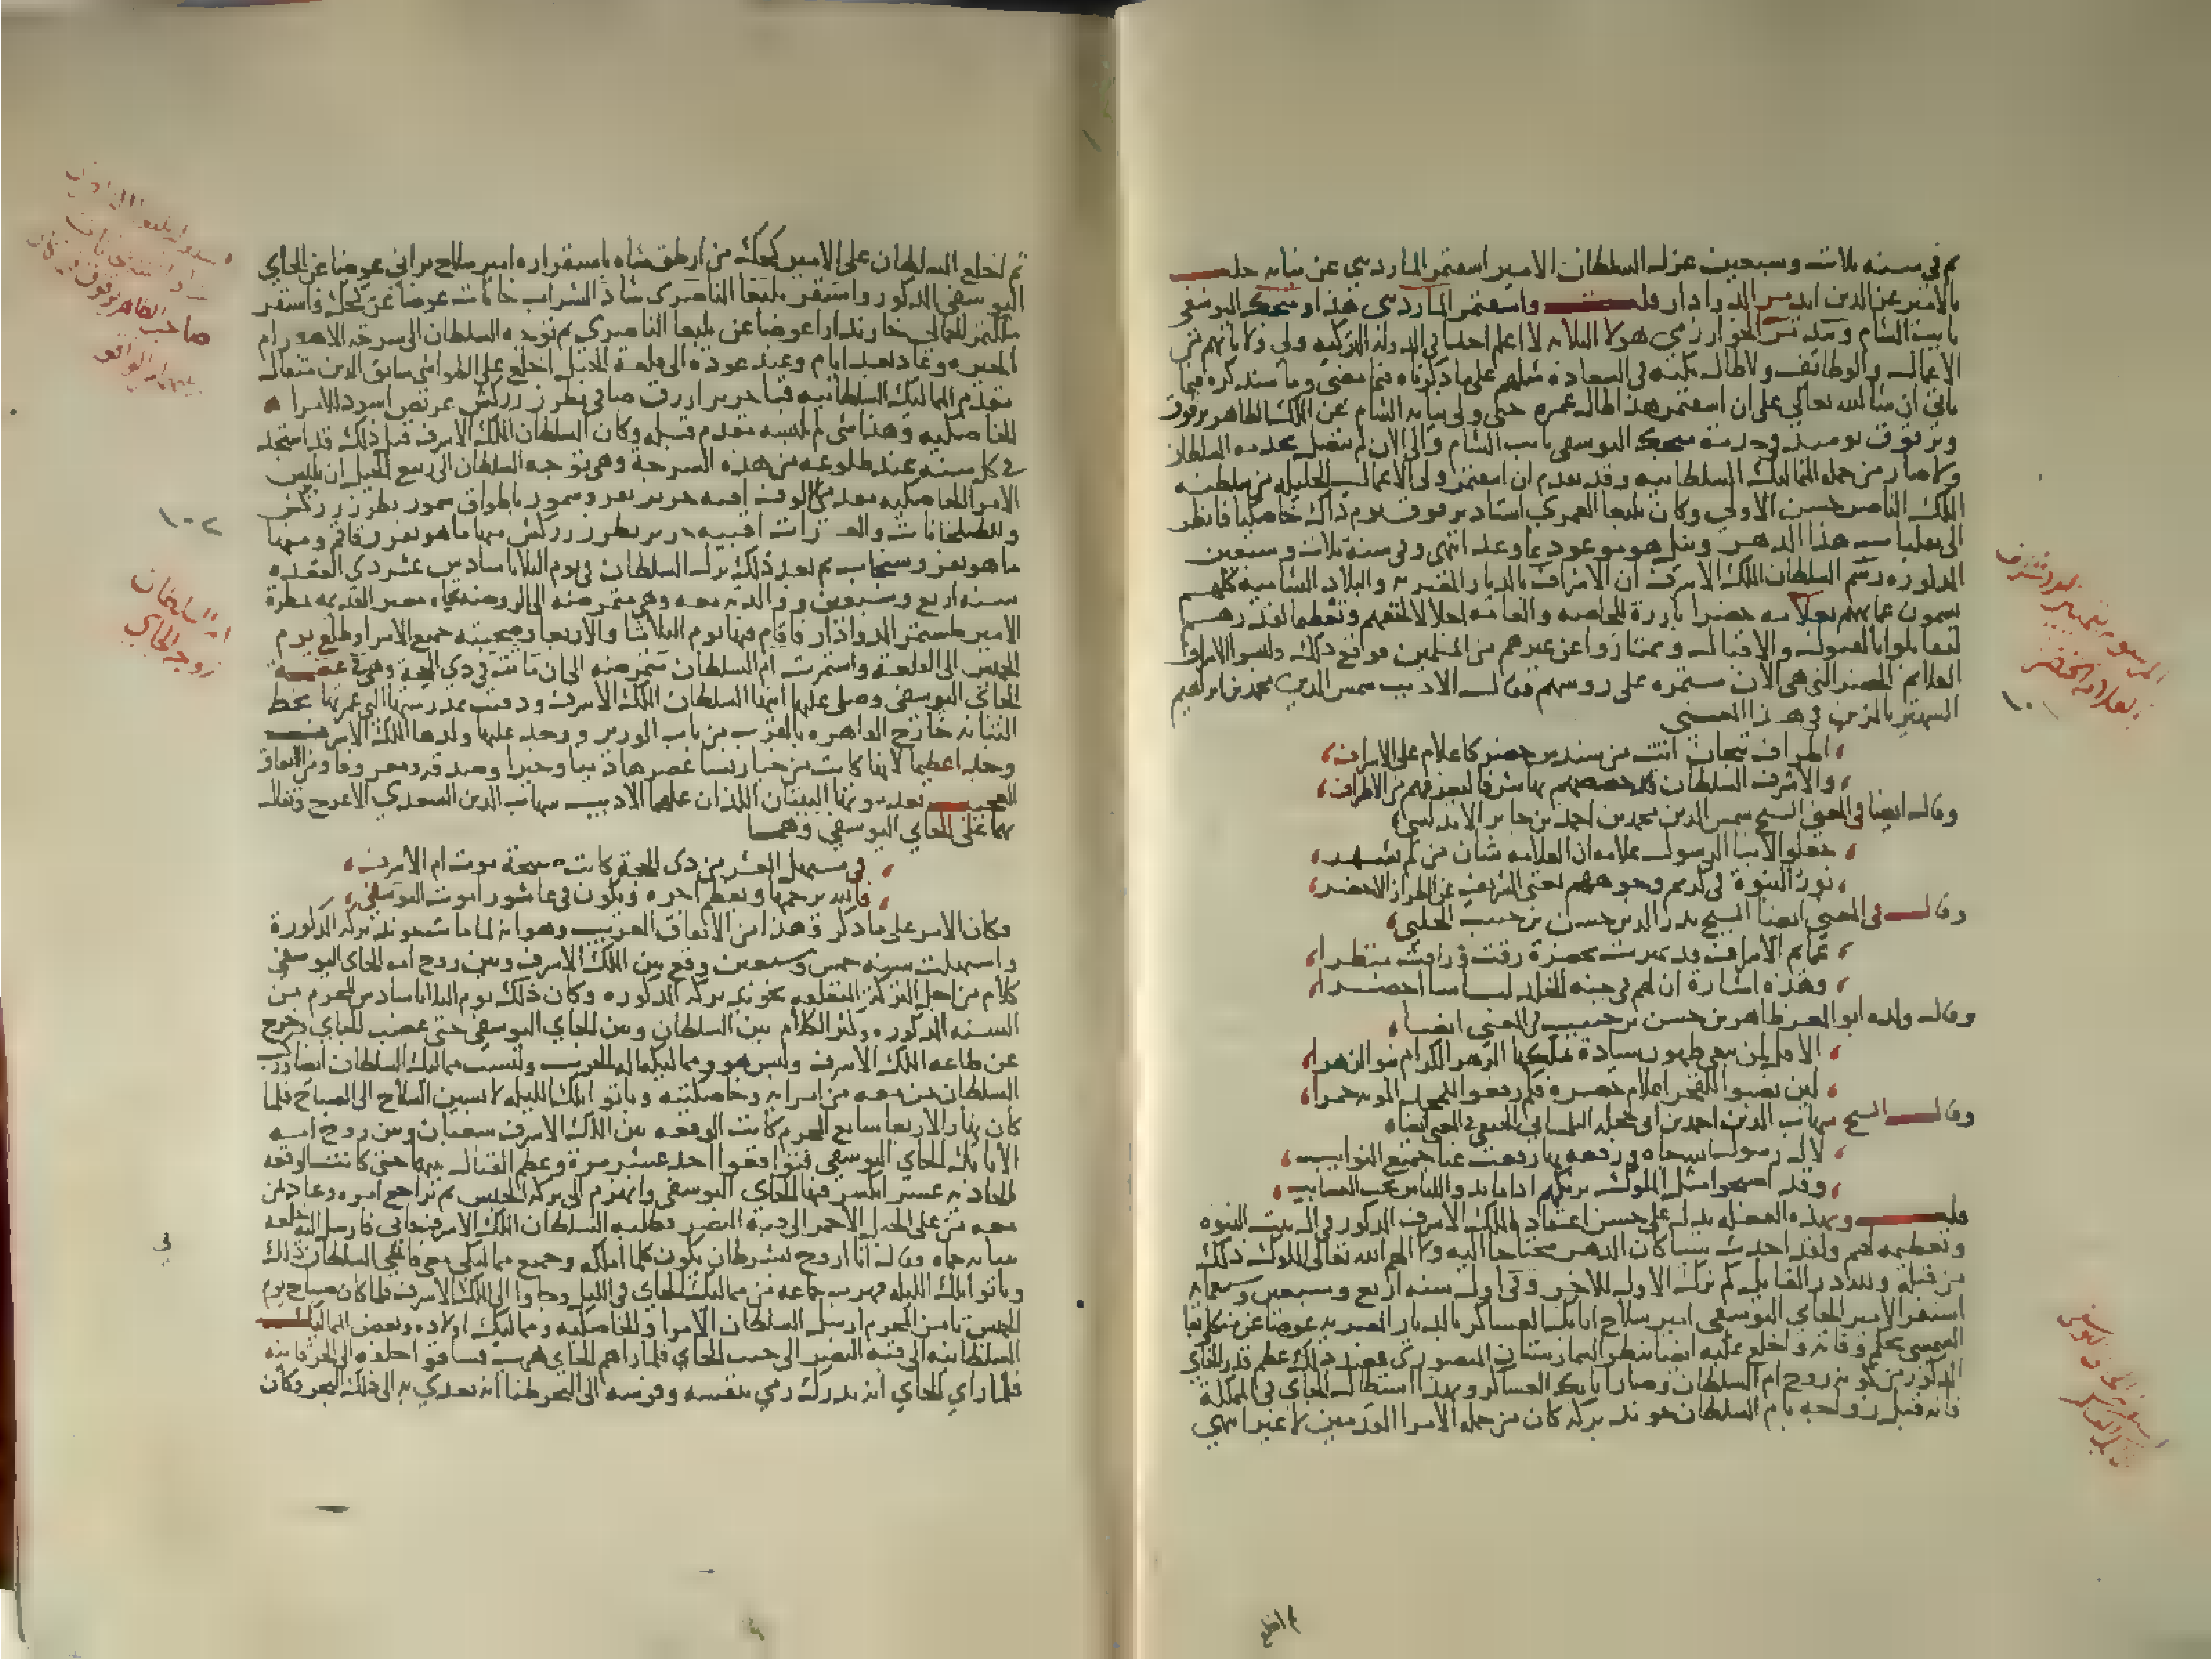 ثم في سنة ثلاث وسبعين عزل السلطان الامير اشقتمر المارديني عن نيابة حلب
بالامير عز الدين ايدمر الدوادار قلت واشقتمر المارديني هذا ومنجك اليوسفي
نايب الشام وبيدمر الخوارزمي هولا الثلاثة لا اعلم احدا في الدولة التركية ولي ولاياتهم من
الاعمال والوظائف ولا طال مكثه في السعادة مثلهم على ما ذكرناه فيما مضى وما سنذكره فيما
ياتي ان شا الله تعالى على ان اشقتمر هذا طال عمره حتى ولي نيابة الشام عن الملك الظاهر برقوق
وبرقوق يوميذ في خدمة منجك اليوسفي نايب الشام والى الان لم يتصل بخدمة السلطان
ولا صار من جملة المماليك السلطانية وقد تقدم ان اشقتمر ولي الاعمال الجليلة من سلطنة
الملك الناصر حسن الاولى وكان يلبغا العمري استاذ برقوق يوم ذاك خاصكيا فانظر
الى تقلبات هذا الدهر ونيل هو موعود بما وعد انتهى وفي سنة ثلاث وسبعين
المذكوره رسم السلطان الملك الاشرف ان الاشراف بالديار المصرية والبلاد الشامية كلهم
يسمون عمايمهم بعلامة خضرا بارزة للخاصه والعامه اجلالا لحقهم وتعظيما لقدرهم
ليقابلوا بالقبول والاقبال ويمتازوا عن غيرهم من المسلمين فوقع ذلك ولبسوا الاشراف
العمايم الخضر التي هي الان مستمره على روسهم فقال الاديب شمس الدين محمد بن ابراهيم
الشهير بالمزين في هذا المعنى
اطراف تيجان اتت من سندس خضر كاعلام على الاشراف
والاشرف السلطان قد خصصهم بها شرفا ليعرفهم من الاطراف
وقال ايضا في المعنى الشيخ شمس الدين محمد بن احمد بن جابر الاندلسي
جعلوا لابنا الرسول علامه ان العلامه شان من لم يشهر
نور النبوة في كريم وجوههم يغني الشريف عن الطراز الاخضر
وقال في المعنى ايضا الشيخ بدر الدين حسن بن حبيب الحلبي
عمايم الاشراف قد تميزت بخضرة رقت وراقت منظرا
وهذه اشارة ان لهم في جنه الخلد لباسا اخضرا
وقال ولده ابو العز طاهر بن حسن بن حبيب في المعنى ايضا
الا قل لمن يبغي ظهور سيادة تملكها الزهر الكرام بنو الزهرا
لين نصبوا للفخر اعلام خضره فكم رفعوا للمجد الوية حمرا
وقال الشيخ شهاب الدين احمد بن ابي حجلة التلمساني الحنفي في المعنى ايضا
لال رسول الله جاه ورفعه بها رفعت عنا جميع النوايب
وقد اصبحوا مثل الملوك برنكهم اذا ما بدوا للناس تحت العصايب
قلت وبهذه الفعله يدل على حسن اعتقاد الملك الاشرف المذكور في ال بيت النبوه
وتعظيمه لهم ولقد احدث شيا كان الدهر محتاجا اليه ولا الهم الله تعالى الملوك ذلك
من قبله ولله در القايل كم ترك الاول للاخر وفي اول سنه اربع وسبعين وسبعمايه
استقر الامير الجاي اليوسفي امير سلاح اتابك العساكر بالديار المصريه عوضا عن منكلي بغا
الشمسي بحكم وفاته واخلع عليه ايضا بنظر البيمارستان المنصوري فعند ذلك عظم قدر الجاي
المذكور من كونه زوج ام السلطان وصار اتابك العساكر وبهذا استطال الجاي في المملكة
فانه قبل زواجه بام السلطان خوند بركه كان من جملة الامرا المقدمين لا غير انتهى
ثم اخلع
المرسوم بتمييز السادة الشرف
بعلامة الخضر
١٠١
ثم اخلع السلطان على الامير كجك من ارطق شاه باستقراره امير سلاح براني عوضا عن الجاي
اليوسفي المذكور واستقر يلبغا الناصري شاد الشراب خانات عوضا عن كجك واستقر
تلكتمر الجمالي خازندارا عوضا عن يلبغا الناصري ثم توجه السلطان الى سرحة الاهرام
بالجيزه وعاد بعد ايام وعند عوده الى قلعة الجبل اخلع على الطواشي سابق الدين مثقال
مقدم المماليك السلطانيه قبا حرير ازرق صافي بطرز زركش عريض اسوة الامرا
الخاصكيه وهذا شي لم يلبسه مقدم قبله وكان السلطان الملك الاشرف قبل ذلك قد استجد
في كل سنه عند طلوعه من هذه السرحة وهي توجه السلطان الى ربيع الخيل ان يلبس
الامرا الخاصكيه مقدمي الالوف اقبيه حرير بفرو سمور باطواق سمور بطرز زركش
والطبلخانات والعشرات اقبيه حرير بطرز زركش منها ما هو بفرو قاقم ومنها
ما هو بفرو سنجاب ثم بعد ذلك نزل السلطان في يوم الثلاثا سادس عشر ذي القعده
سنه اربع وسبعين ووالدته معه وهي متمرضه الى الروضه تجاه مصر القديمه بمنظرة
الامير طشتمر الدوادار فاقام فيها يوم الثلاثا والاربعا وصحبته جميع الامرا وطلع يوم
الخميس الى القلعة واستمرت ام السلطان متمرضه الى ان ماتت في ذي الحجة وهي في عصمة
الجاي اليوسفي وصلى عليها ابنها السلطان الملك الاشرف ودفنت بمدرستها التي عمرتها بخط
التبانه خارج القاهره بالقرب من باب الوزير ووجد عليها ولدها الملك الاشرف
وجدا عظيما لانها كانت من خيار نسا عصرها دينا وخيرا وصدقه ومعروفا ومن الاتفاق
العجيب بعد موتها البيتان اللذان عملهما الاديب شهاب الدين السعدي الاعرج وتفال
بهما على الجاي اليوسفي وهما
في مستهل العشر من ذي الحجة كانت صبيحة موت ام الاشرف
فالله يرحمها ويعظم اجره ويكون في عاشور موت اليوسفي
فكان الامر على ما ذكر وهذا من الاتفاق الغريب وهو انه لما ماتت خوند بركه المذكورة
واستهلت سنه خمس وسبعين وقع بين الملك الاشرف وبين زوج امه الجاي اليوسفي
كلام من اجل التركة المتعلقه بخوند بركه المذكوره وكان ذلك يوم الثلاثا سادس المحرم من
السنه المذكوره وكثر الكلام بين السلطان وبين الجاي اليوسفي حتى غضب الجاي وخرج
عن طاعه الملك الاشرف ولبس هو ومماليكه اله الحرب ولبست مماليك السلطان ايضا وركب
السلطان بمن معه من امرايه وخاصكيته وباتوا تلك الليله لابسين السلاح الى الصباح فلما
كان نهار الاربعا سابع المحرم كانت الوقعه بين الملك الاشرف شعبان وبين زوج امه
الاتابك الجاي اليوسفي فتواقعوا احد عشر مرة وعظم القتال بينهما حتى كانت الوقعه
الحاديه عشر انكسر فيها الجاي اليوسفي وانهزم الى بركه الحبش ثم تراجع امره وعاد بمن
معه من على الجبل الاحمر الى قبة النصر فطلبه السلطان الملك الاشرف فابى فارسل اليه خلعه
بنيابه حماه فقال انا اروح بشرط ان يكون كلما املكه وجميع مماليكي معي فابى السلطان ذلك
وباتوا تلك الليله فهرب جماعه من مماليك الجاي في الليل وجاوا الى الملك الاشرف فلما كان صباح يوم
الخميس ثامن المحرم ارسل السلطان الامرا والخاصكيه ومماليك اولاده وبعض المماليك
السلطانيه الى قبه النصر الى حيث الجاي فلما راهم الجاي هرب فساقوا خلفه الى الخرقانيه
فلما راى الجاي انه مدرك رمى بنفسه وفرسه الى البحر ظنا انه يعدي به الى ذلك البر وكان
صاحب الظاهر برقوق
١٠٢
ام السلطان
زوجة الجاي